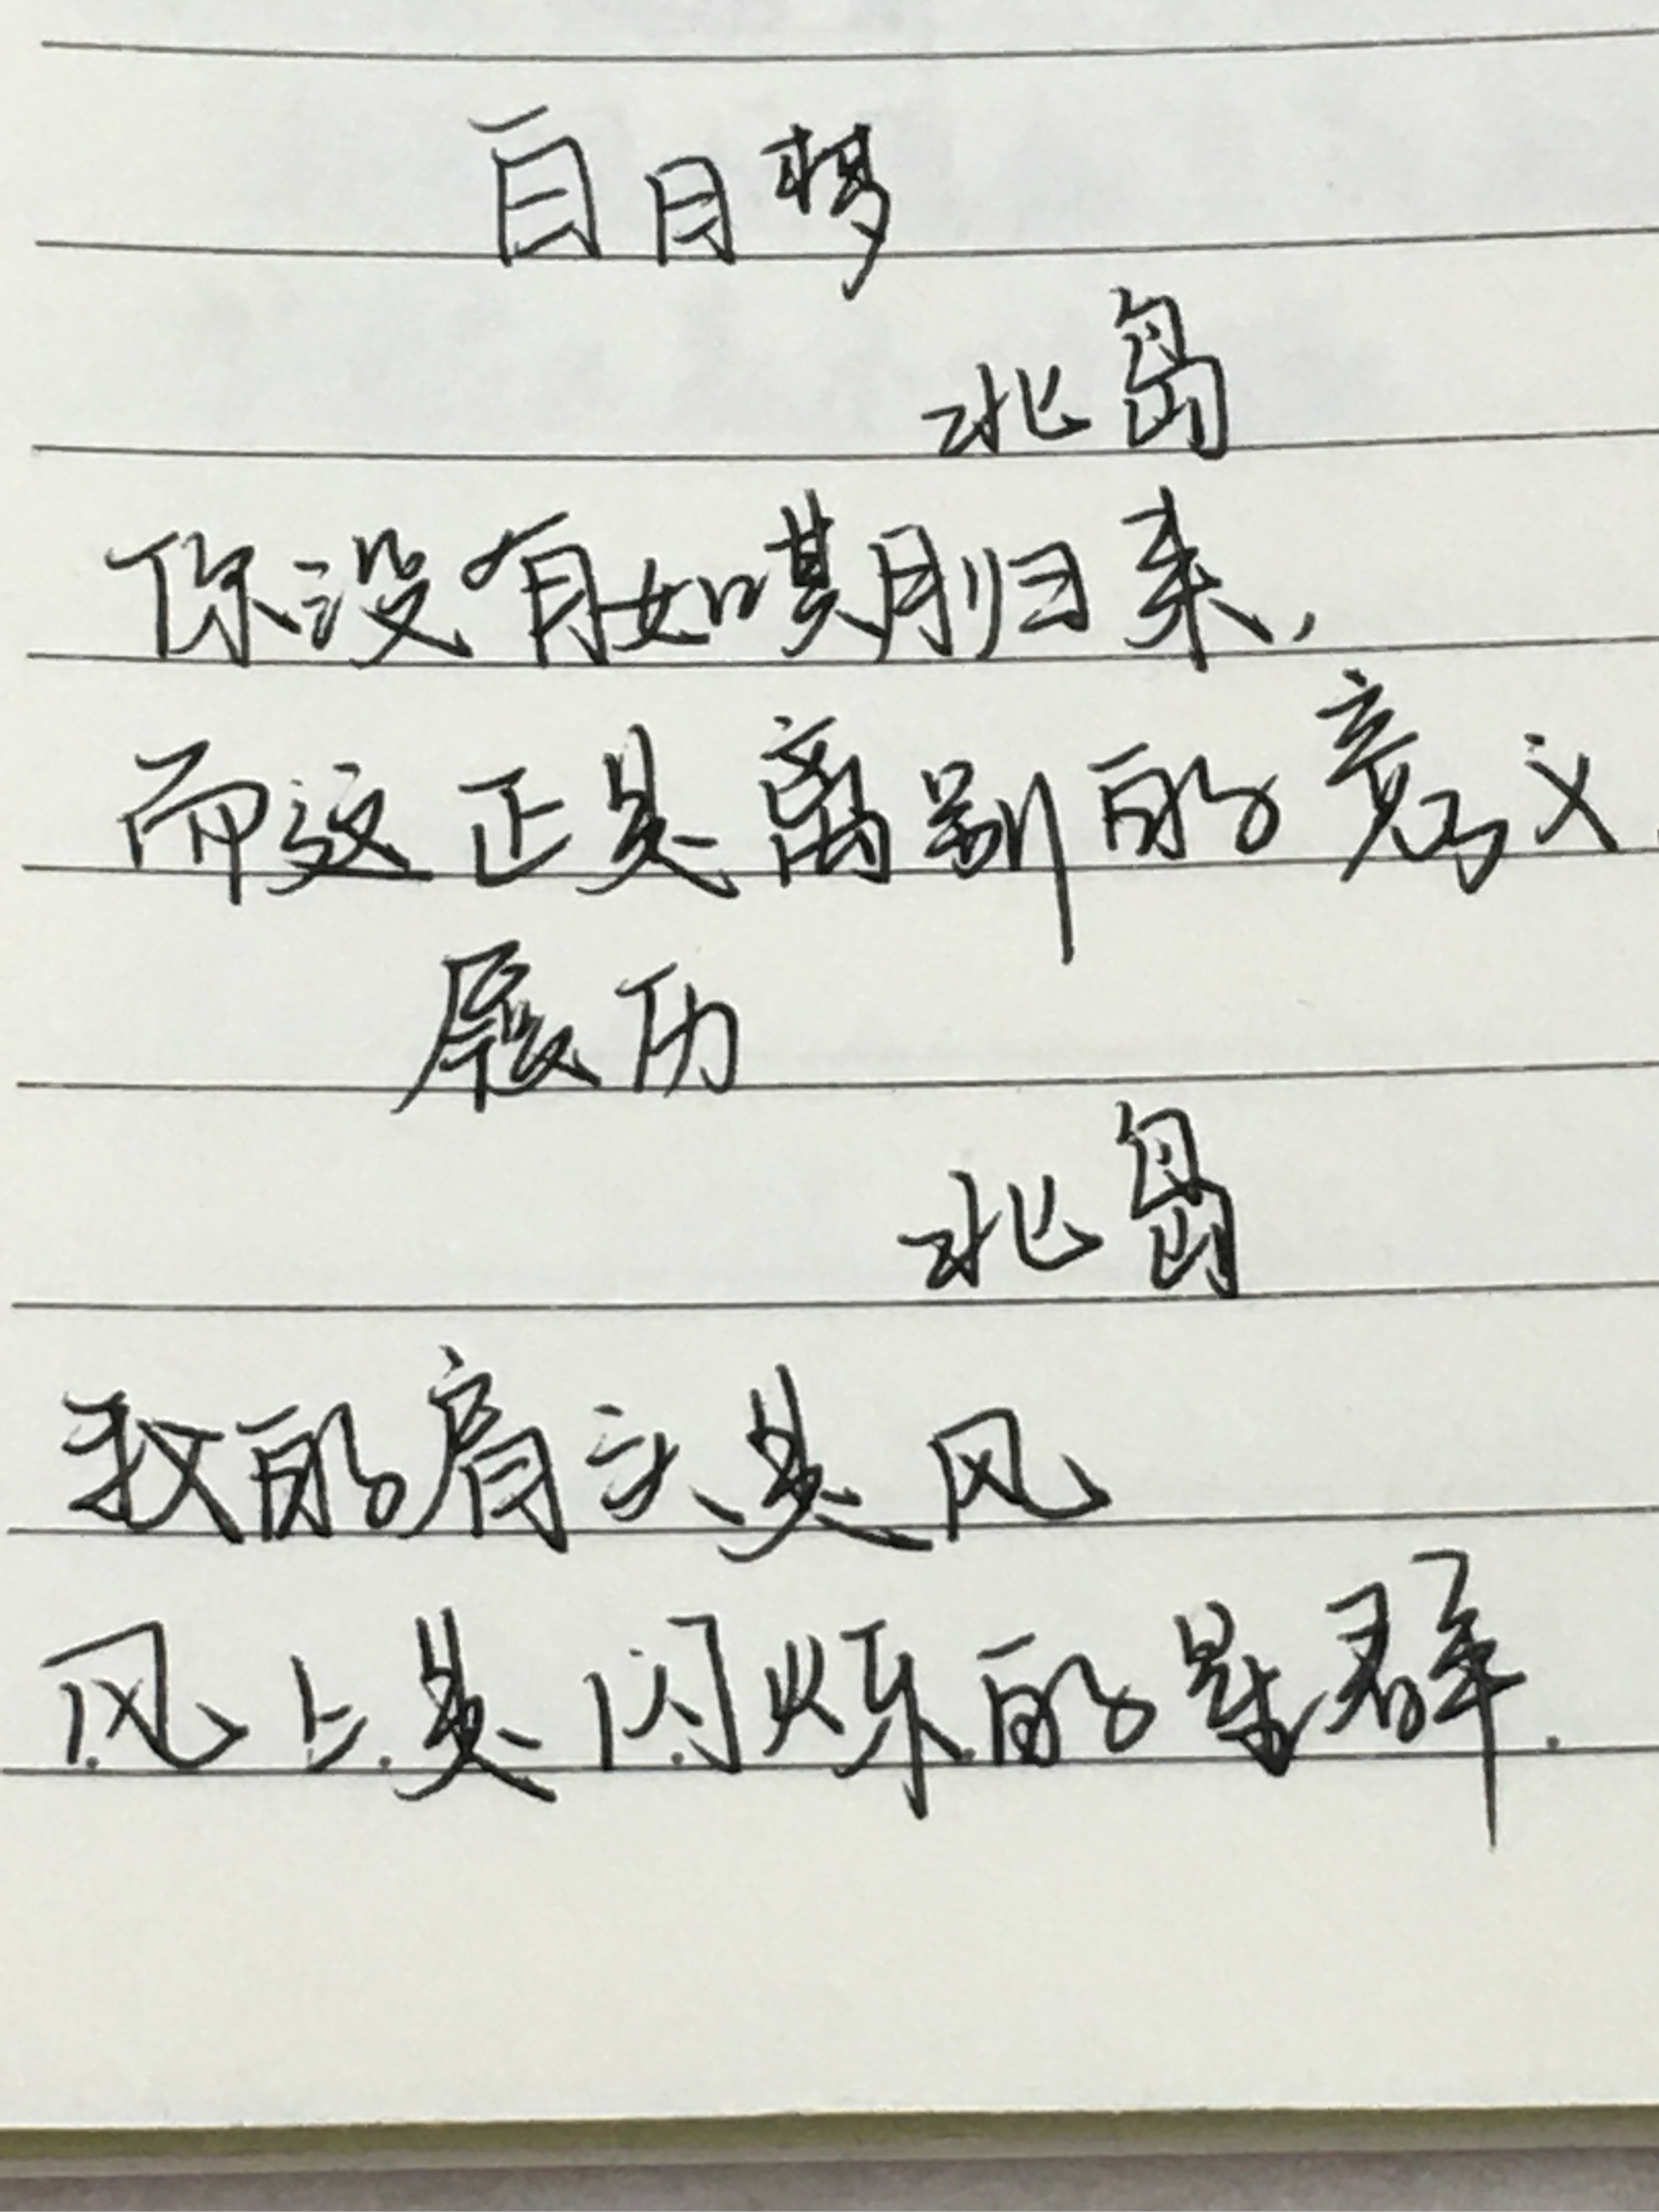 白日梦
北岛
你没有如期归来,
而这正是离别的意义.
履历
北岛
我的肩头是风
风上是闪烁的星群.